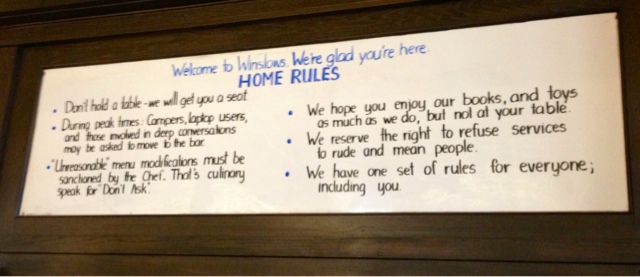 Welcome to Winslows. We're glad you're here.
HOME RULES
• Don't hold a table - we will get you a seat
• During peak times: Campers, laptop users,
and those involved in deep conversations
may be asked to move to the bar.
• "Unreasonable" menu modifications must be
sanctioned by the Chef. That's culinary
speak for "Don't Ask".
• We hope you enjoy our books, and toys
as much as we do, but not at your table.
• We reserve the right to refuse services
to rude and mean people.
• We have one set of rules for everyone;
including you.